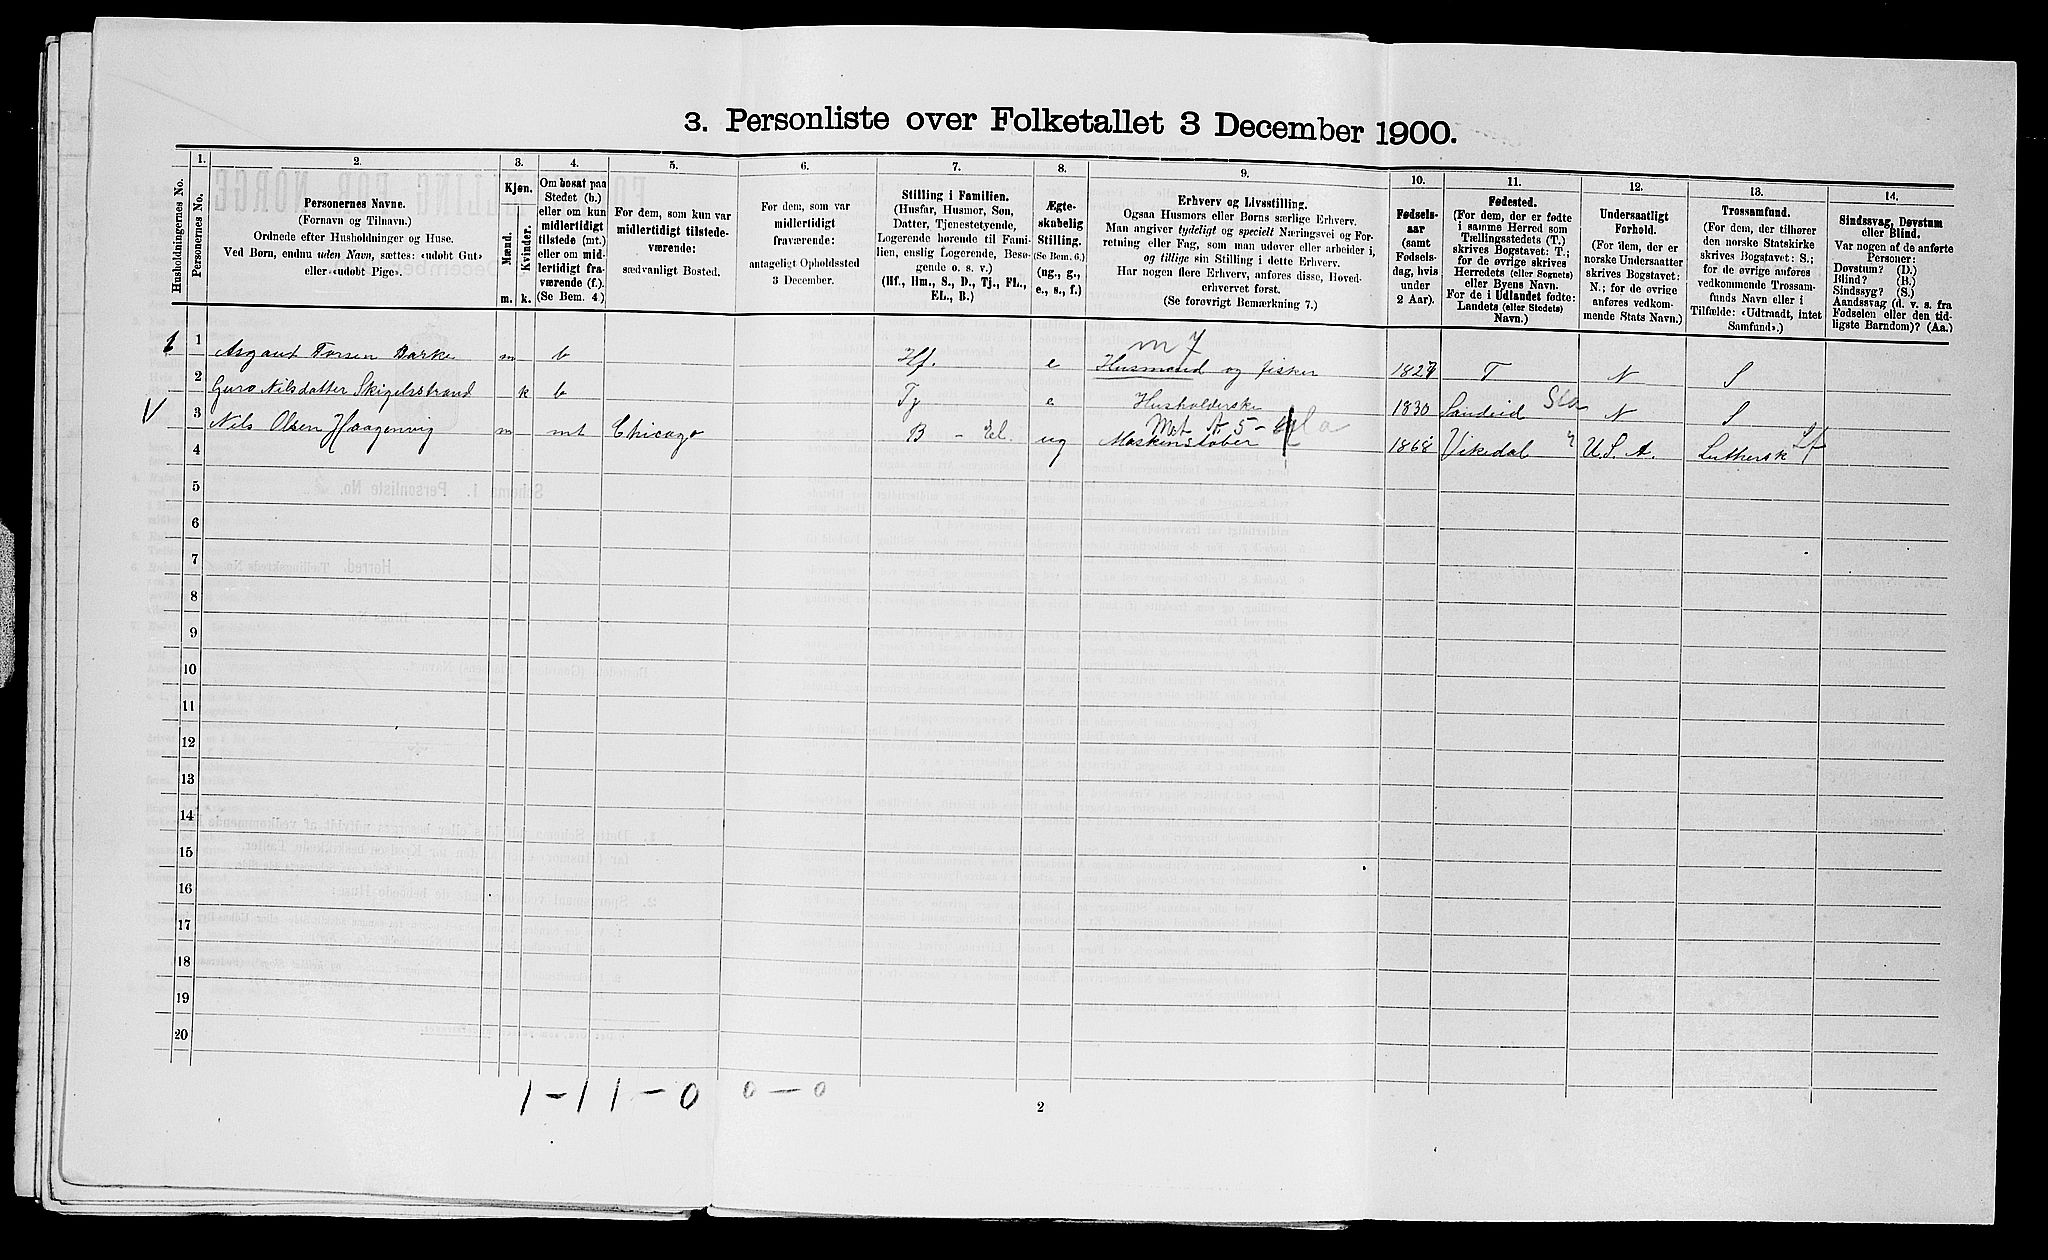 3. Personliste over Folketallet 3 December 1900.
1. 2. 3. 4. 5. 6. 7. 8. 9. 10. 11. 12. 13. 14.
Husholdningernes No.
Personernes No.
Personernes Navne.
(Fornavn og Tilnavn.)
Ordnede efter Husholdninger og Huse.
Ved Børn, endnu uden Navn, sættes: «udøbt Gut»
eller «udøbt Pige».
Kjøn.
Mænd.
Kvinder.
m. k.
Om bosat paa
Stedet (b.)
eller om kun
midlertidigt
tilstede (mt.)
eller om mid-
lertidigt fra-
værende (f.).
(Se Bem. 4.)
For dem, som kun var
midlertidigt tilstede-
værende:
sædvanligt Bosted.
For dem, som var
midlertidigt
fraværende:
antageligt Opholdssted
3 December.
Stilling i Familien.
(Husfar, Husmor, Søn,
Datter, Tjenestetyende,
Logerende hørende til Fami-
lien, enslig Logerende, Besø-
gende o. s. v.)
(Hf., Hm., S., D., Tj., FL.,
EL., B.)
Ægte-
skabelig
Stilling.
(Se Bem. 6.)
(ug., g.,
e., s., f.)
Erhverv og Livsstilling.
Ogsaa Husmors eller Børns særlige Erhverv.
Man angiver tydeligt og specielt Næringsvei og For-
retning eller Fag, som man udøver eller arbeider i,
og tillige sin Stilling i dette Erhverv.
Har nogen flere Erhverv, anføres disse, Hoved-
erhvervet først.
(Se forøvrigt Bemærkning 7.)
Fødsels-
aar
(samt
Fødsels-
dag, hvis
under
2 Aar).
Fødested.
(For dem, der er fødte
i samme Herred som
Tællingsstedets (T.)
skrives Bogstavet: T.;
for de øvrige skrives
Herredets (eller Sognets)
eller Byens Navn.
For de i Udlandet fødte:
Landets (eller Stedets)
Navn.)
Undersaatligt
Forhold.
(For dem, der er
norske Undersaatter
skrives Bogstavet:
N.; for de øvrige
anføres vedkom-
mende Stats Navn.)
Trossamfund.
(For dem, der tilhører
den norske Statskirke
skrives Bogstavet: S.;
for de øvrige anføres
vedkommende Trossam-
funds Navn eller i
Tilfælde: «Udtraadt, intet
Samfund».)
Sindssvag, Døvstum
eller Blind.
Var nogen af de anførte
Personer:
Døvstum? (D.)
Blind? (B.)
Sindssyg? (S.)
Aandssvag (d. v. s. fra
Fødselen eller den tid-
ligste Barndom)? (Aa.)
m 7
1 1 Asgaut Torsen Barke m b Hf. e Husmand og fisker 1827 T N S
2 Guro Nilsdatter Skigelsstrand k b Tj e Husholderske 1830 Sandeid N S
V 3 Nils Olsen Haagenvig m mt Chicago B - El. ug Maskinstøber 1868 Vikedal U. S. A. Luthersk Lf
4
5
6
7
8
9
10
11
12
13
14
15
16
17
18
19
20
1 - 1 1 - 0 0 - 0
2